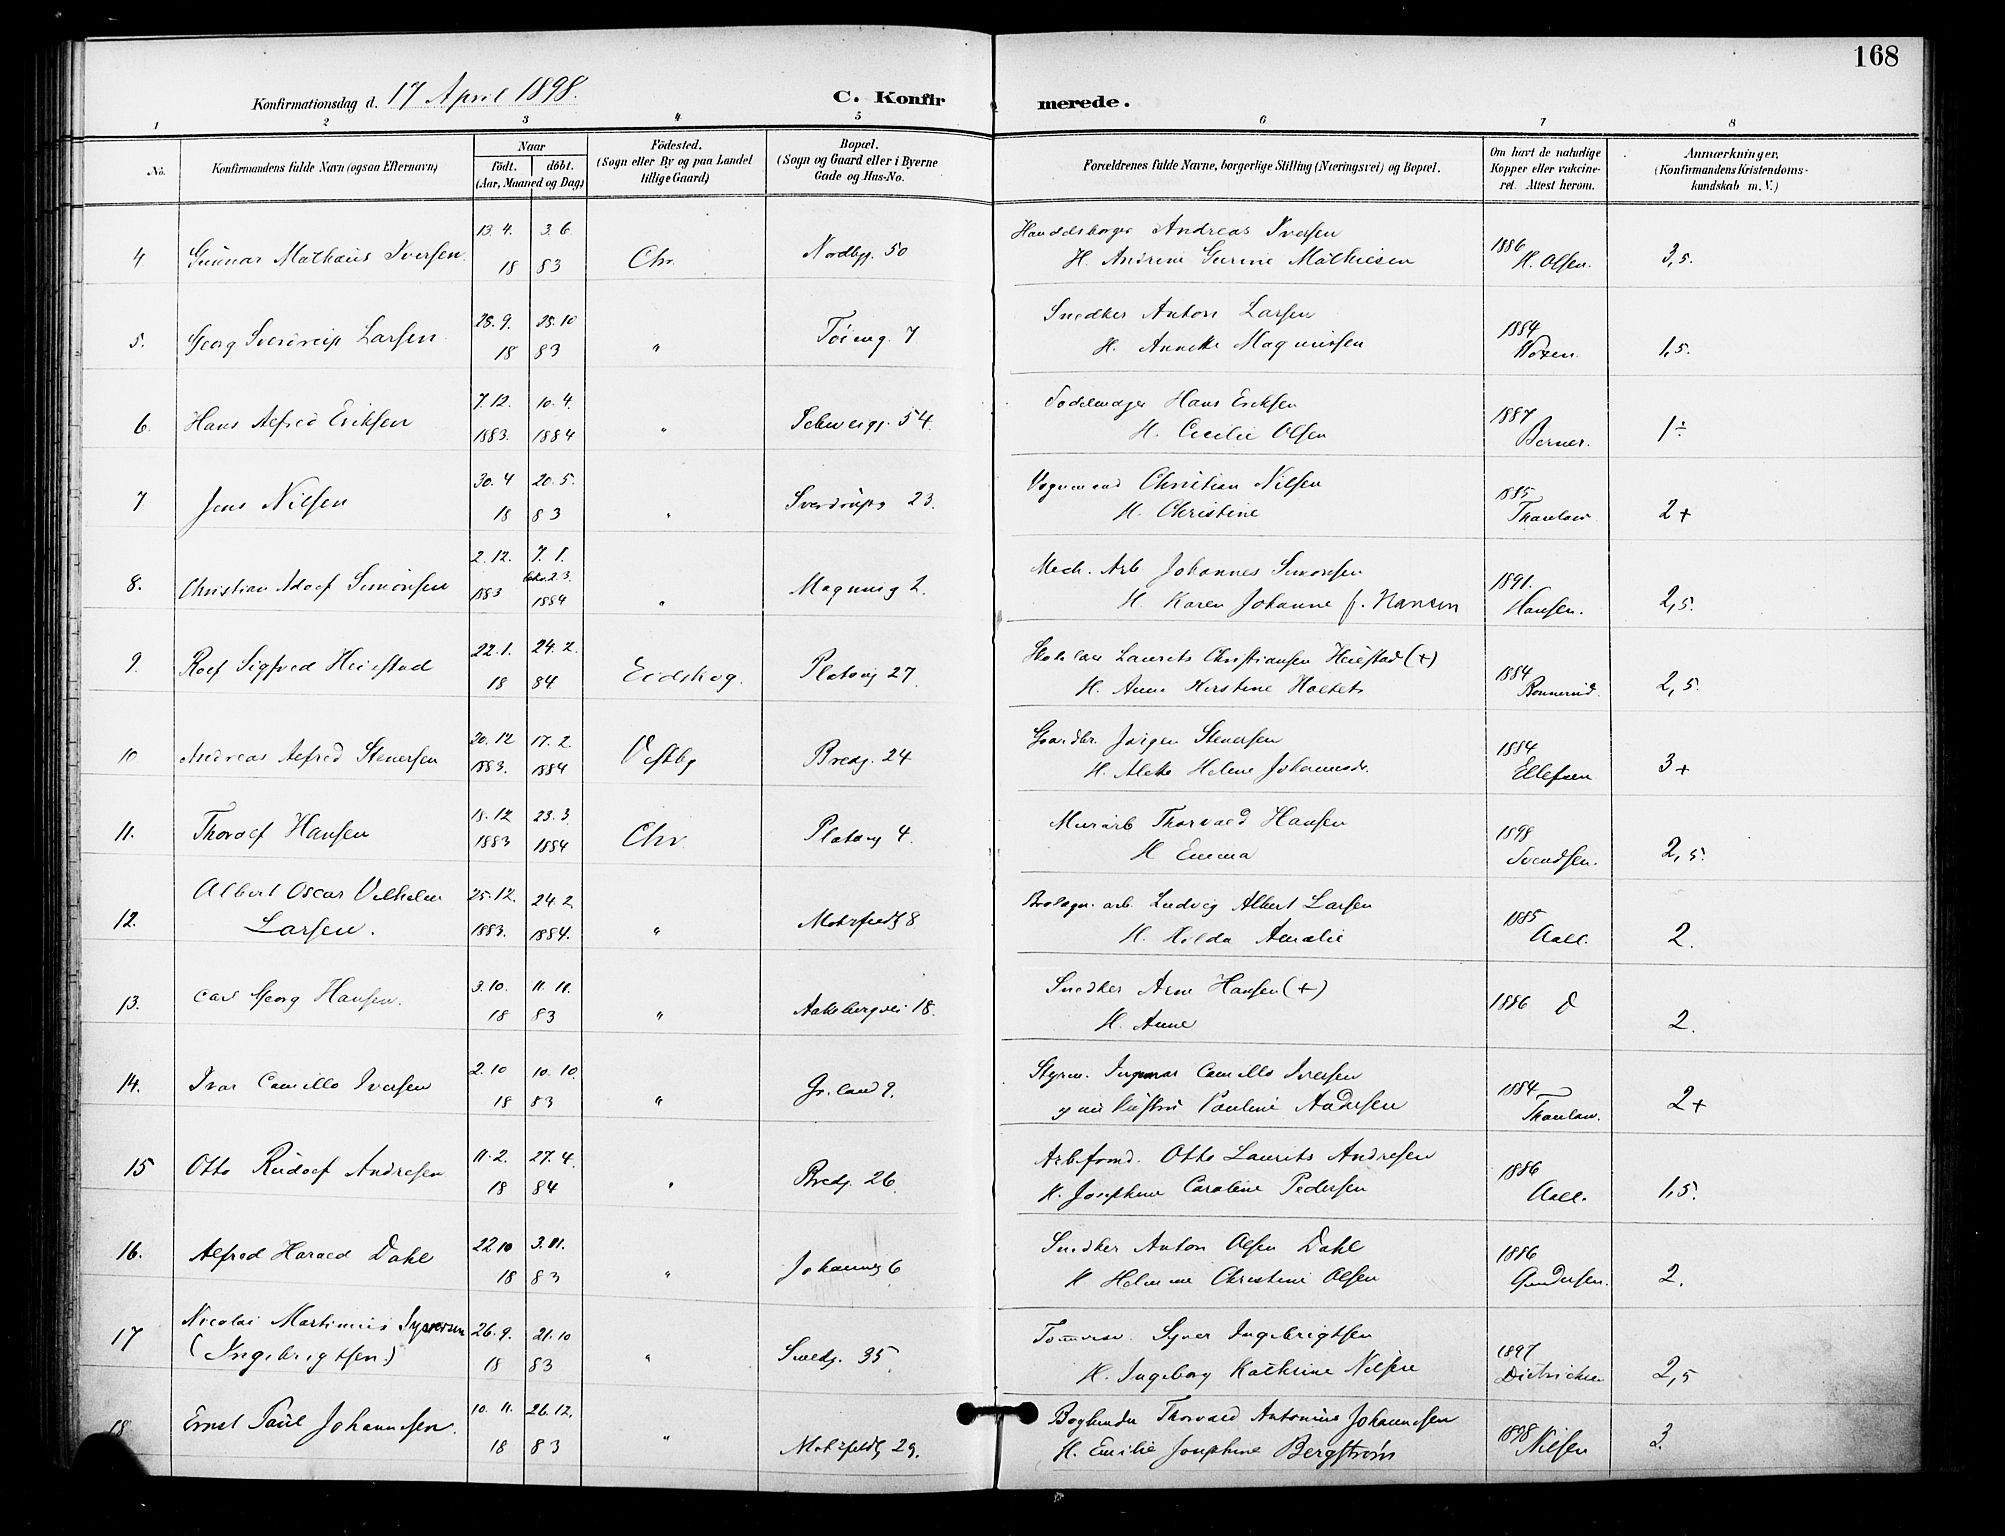 168
Konfirmationsdag d. 17 April 1898.
C. Konfirmerede.
1 2 3 4 5 6 7 8
No.
Konfirmandens fulde Navn (ogsaa Efternavn)
Naar
født. døbt.
(Aar, Maaned og Dag)
Fødested.
(Sogn eller By og paa Landet
tillige Gaard)
Bopæl.
(Sogn og Gaard eller i Byerne
Gade og Hus-No.
Forældrenes fulde Navne, borgerlige Stilling (Næringsvei) og Bopæl.
Om havt de naturlige
Kopper eller vakcine-
ret. Attest herom.
Anmærkninger,
(Konfirmandens Kristendoms-
kundskab m. V.)
13.4. 3.6. Handelsborger Andreas Iversen
4. Gunnar Mathæus Iversen. 18 83 Chr. Nordbyg. 50 H. Andrine Gurine Mathiesen 1886 H. Olsen. 3,5.
28.9. 28.10 Snedker Anton Larsen
5. Georg Sverdrup Larsen 18 83 " Tøieng. 7 H. Annette Magnussen 1884 1,5.
7.12. 10.4. Hans Eriksen
6. Hans Alfred Eriksen 1883. 1884 " Schweigg. 54. H. Cecilie Olsen 1887 Berner. 1÷
30.4 20.5. Vognmand Christian Nilsen
7 Jens Nilsen 18 83 " Sverdrupg 23. H. Christine 1885 Thaulow 2+
2.12. 7.1. Mech. Arb Johannes Simonsen
8. Christian Adolf Simonsen 1883 2.3. 1884 " Magnusg 2. H. Karen Johanne f. Hansen 1891. Hansen. 2,5.
22.1. 24.2. Laurits Christiansen Heiestad (+)
9. Rolf Sigfred Heiestad 18 84 Eidskog. Platoug 27. H. Anne Kirstine Holtet 1884 2,5.
20.12 17.2. Gaardbr. Jørgen Stenersen
10 Andreas Alfred Stenersen 1883. 1884 Vestby Bredg. 24 H. Alette Helene Johannesdr. 1884 Ellefsen 3+
18.12 23.3. Murarb Thorvald Hansen
11. Thorolf Hansen 1883 1884 Chr. Platoug 4. H Emma 1898 Svendsen. 2,5.
Albert Oscar Vilhelm 25.12. 24.2. arb. Ludvig Albert Larsen
12. Larsen. 1883. 1884. " Motzfeldtg 8 H. Hilda Amalie 1885 Aall. 2.
3.10. 11.11. Snedker Arne Hansen (+)
13. Carl Georg Hansen. 18 83 " Aakebergvei 18. H. Anne 1886 2.
2.10 10.10. Styrm. Ingmar Camillo Iversen
14. Ivar Camillo Iversen 18 83 " Grønland 9. Pauline Andersen 1884 Thaulow. 2+
11.2. 27.4. Arbfmd. Otto Laurits Andresen
15 Otto Rudolf Andresen 18 84 " Bredg. 26. H. Josephine Caroline Pedersen 1886 Aall. 1,5.
22.10 3.11. Snedker Anton Olsen Dahl
16. Alfred Harald Dahl 18 83 " Johannesg 6 H. Helmine Christine Olsen 1886 Gundersen. 2.
Nicolai Martinius Syversen 26.9. 21.10 Tømmerm. Syver Ingebrigtsen
17 (Ingebrigtsen) 18 83 " Smedg. 35. H. Ingeborg Kathrine Nilsen 1897 Dietrichsen 2,5
10.11. 26.12. Bogbinder Thorvald Antonius Johannesen
18 Ernst Paul Johannesen. 18 83 " Motzfeldtg 29. H. Emilie Josephine Bergstrøm 1898 Nilsen 3.